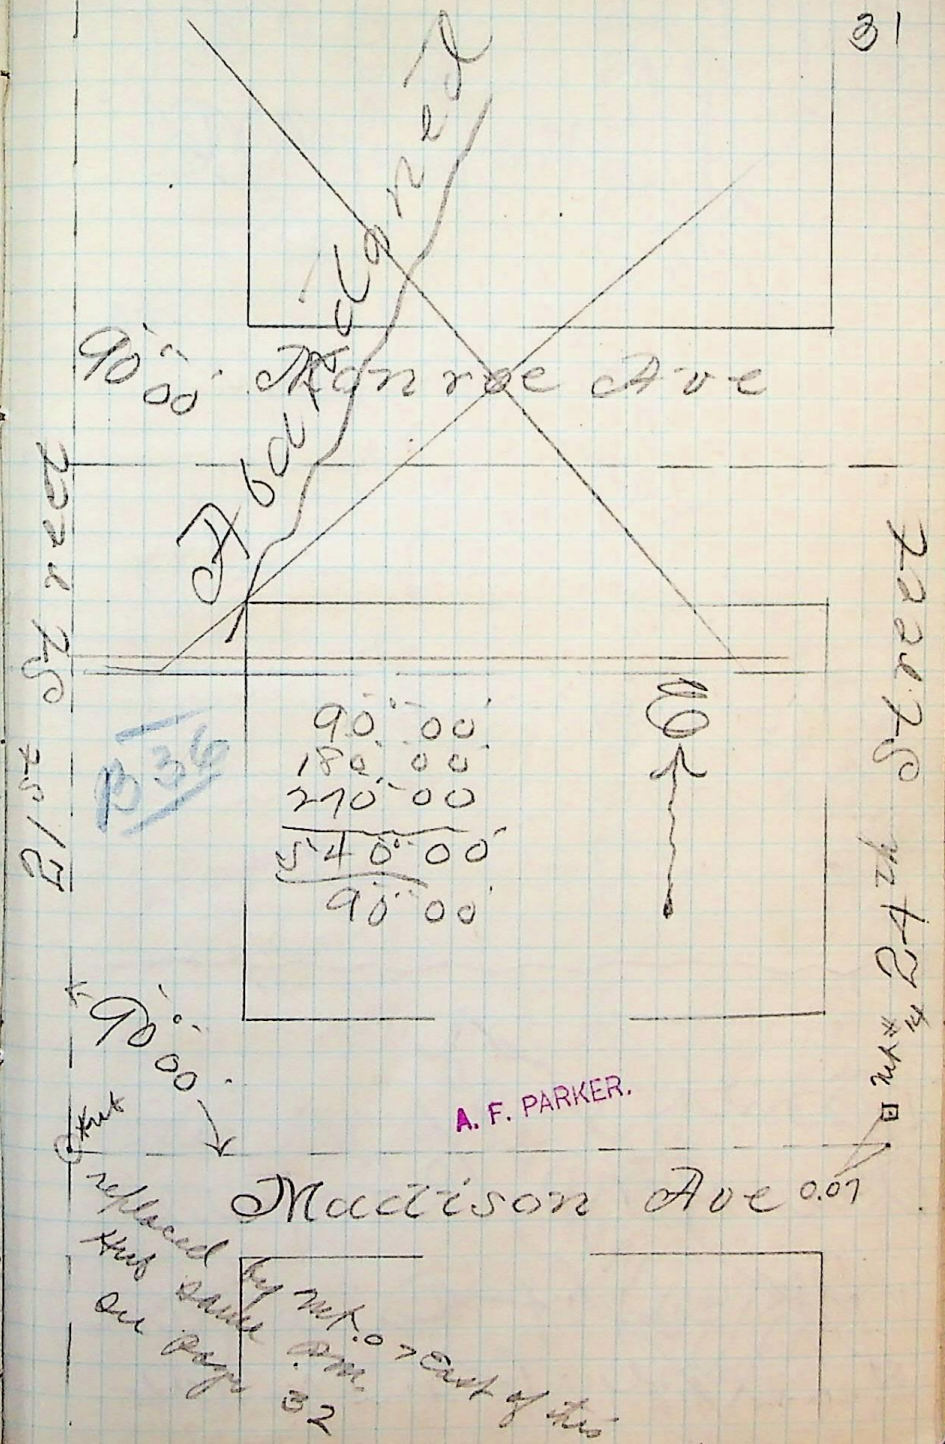 31
Abandoned
90° 00'
Monroe Ave
21st Street
24th Street
B 36
90° 00'
180° 00'
270° 00'
540° 00'
90° 00'
90° 00'
Mt #
14
A. F. PARKER.
Hub
Madison Ave
0.07
replaced by Mt. 0.07 East of this
Hub same
on page 32